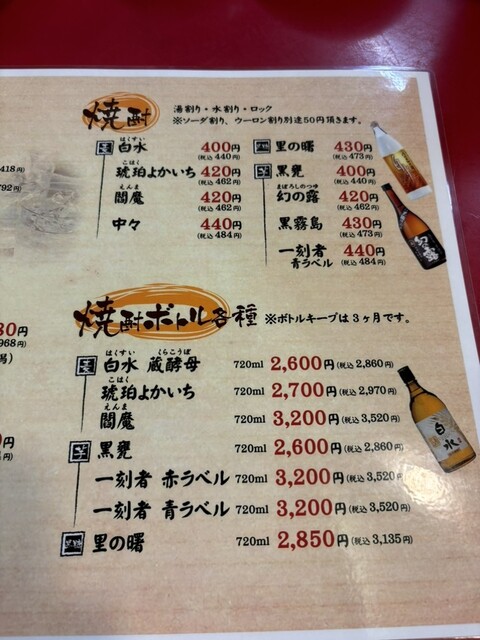 焼酎
湯割り・水割り・ロック
※ソーダ割り、ウーロン割り別途50円頂きます。
麦
はくすい
白水 400円 (税込440円)
こはく
琥珀よかいち 420円 (税込462円)
えんま
閻魔 420円 (税込462円)
中々 440円 (税込484円)
里の曙 430円 (税込473円)
芋
黒甕 400円 (税込440円)
まぼろしのつゆ
幻の露 420円 (税込462円)
黒霧島 430円 (税込473円)
一刻者 440円
青ラベル (税込484円)
418円)
792円)
80円
968円)
円
円)
焼酎ボトル各種 ※ボトルキープは3ヶ月です。
麦
はくすい くらこうぼ
白水 蔵酵母 720ml 2,600円 (税込2,860円)
こはく
琥珀よかいち 720ml 2,700円 (税込2,970円)
えんま
閻魔 720ml 3,200円 (税込3,520円)
芋
黒甕 720ml 2,600円 (税込2,860円)
一刻者 赤ラベル 720ml 3,200円 (税込3,520円)
一刻者 青ラベル 720ml 3,200円 (税込3,520円)
里の曙 720ml 2,850円 (税込3,135円)
幻露
白水